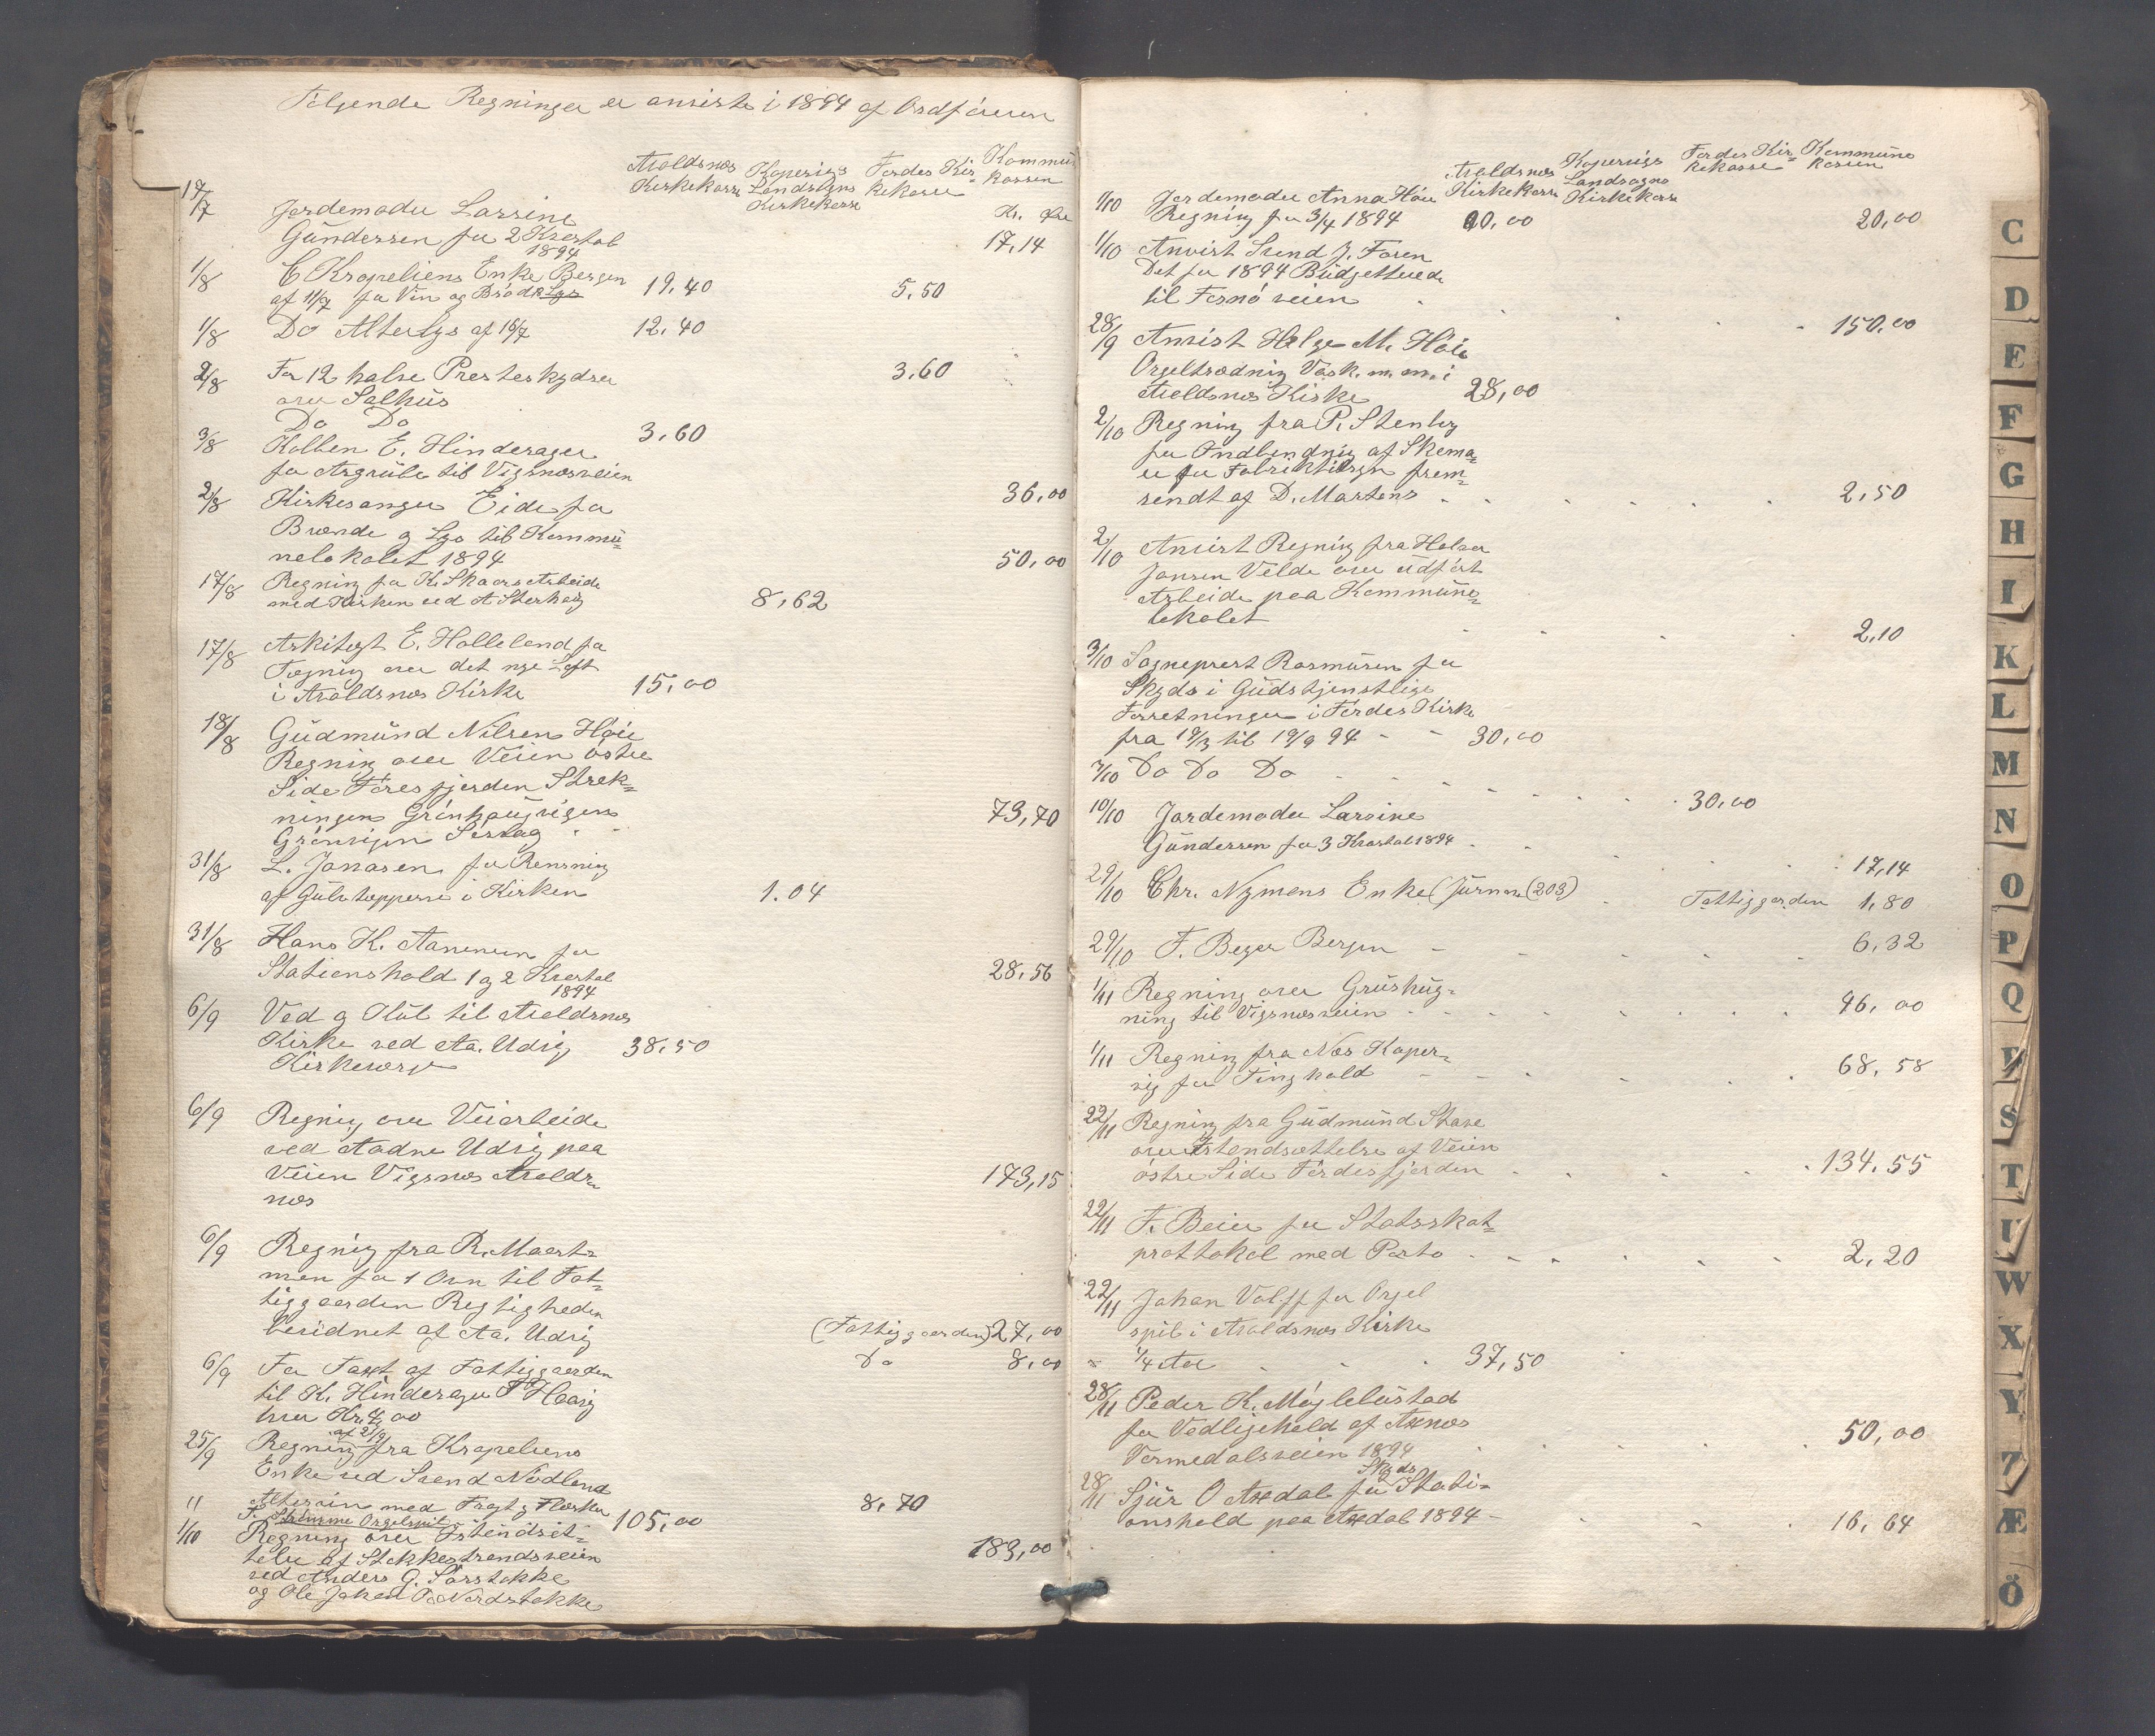 Følgende Regninger er anviste i 1894 af Ordføreren
Avaldsnes Kirkekasse
Kopervigs Landsogns Kirkekasse
Førdes Kirkekasse
Kommunekassen
Kr. Øre
17/7 Jordemoder Larsine
Gundersen for 2 Kvartal
1894 17,14
1/8 C Krapeliens Enke Bergen
af 11/7 for Vin og Brød 19,40 5,50
1/8 Do Alterlys af 16/7 12,40
2/8 For 12 halve Presteskydser
over Salhus 3,60
Do Do 3,60
3/8 Kolben E. Hinderager
for Avgrube til Vigsnesveien 36,00
2/8 Kirkesanger Eide for
Brænde og Lys til Kommu=
nelokalet 1894 50,00
17/8 Regning for K. Skaars Arbeide
med Kirken ved A Storhaug 8,62
17/8 Arkitegt E. Halleland for
Tegning over det nye Loft
i Avaldsnes Kirke 15,00
18/8 Gudmund Nilsen Høie
Regning over Veien østre
Side Føresfjorden Strek=
ningen Grønhaugvigen
Grønvigen 73,70
31/8 L. Jonasen for Rensning
af Gulvtæpperne i Kirken 1.04
31/8 Hans K. Aanensen for
Stationshold 1 og 2 Kvartal
1894 28,56
6/9 Ved og Kul til Avaldsnes
Kirke ved Aa. Udvig 38,50
Kirkeverge
6/9 Regning over Veiarbeide
ved Aadne Udvig paa
Veien Vigsnes Avalds=
nes 173,15
6/9 Regning fra R. Maart=
men for 1 Ovn til Fat=
tiggaarden Regtigheden
bevidnet af Aa. Udvig (Fattiggaarden) 27,00
6/9 For Taxt af Fattiggaarden Do 8,00
til K. Hinderager T Haavig
hver Kr. 4,00
af 21/9
25/9 Regning fra Krapeliens
Enke ved Svend Nødland
Altervin med Fragt og Flasker 8,70
" T. Strømme Orgelspil 105,00
1/10 Regning over Istandset=
telse af Stokkestrandsveien 183,00
ved Anders G. Sørstokke
og Ole Johan O. Nordstokke
Avaldsnes Kirkekasse
Kopervigs Landsogns Kirkekasse
Førdes Kirkekasse
Kommunekassen
1/10 Jordemoder Anna Høie
Regning for 3/4 1894 20,00 20,00
1/10 Anvist Svend J. Faren
Det for 1894 Budgetterede
til Fosnø veien 150,00
28/9 Anvist Helge M. Høie
Orgeltrædning Vask. m. m. i
Avaldsnes Kirke 28,00
2/10 Regning fra P. Stenberg
for Indbindnig af Skema=
er for Fabriktilsyn frem=
sendt af D. Martens 2,50
2/10 Anvist Regning fra Halvor
Jansen Velde over udført
Arbeide paa Kommune=
lokalet 2,10
3/10 Sogneprest Rasmusen for
Skyds i Gudstjenstlige
Forretninger i Førdes Kirke
fra 19/3 til 19/9 94 30,00
3/10 Do Do Do 30,00
10/10 Jordemoder Larsine
Gundersen for 3 Kvartal 1894 17,14
29/10 Chr. Nymans Enke (Journ. 203) Fattiggarden 1,80
29/10 F. Beyer Bergen 6,32
1/11 Regning over Grushug=
ning til Vigsnesveien 96,00
1/11 Regning fra Næs Koper=
vig for Tinghold 68,58
22/11 Regning fra Gudmund Stave
over Istandsættelse af Veien
østre Side Førdesfjorden 134,55
22/11 F. Beier for Statsskat=
prottokol med Porto 2,20
22/11 Johan Valff for Orgel
spil i Avaldsnes Kirke
1/4 Aar 37,50
28/11 Peder K. Møglebustad
for Vedligehold af Axnes
Vormedalsveien 1894 50,00
28/11 Sjur O Axdal for Skyds Stati=
onshold paa Axdal 1894 16,64
C
D
E
F
G
H
I
K
L
M
N
O
P
Q
R
S
T
U
W
X
Y
Z
Æ
Ö